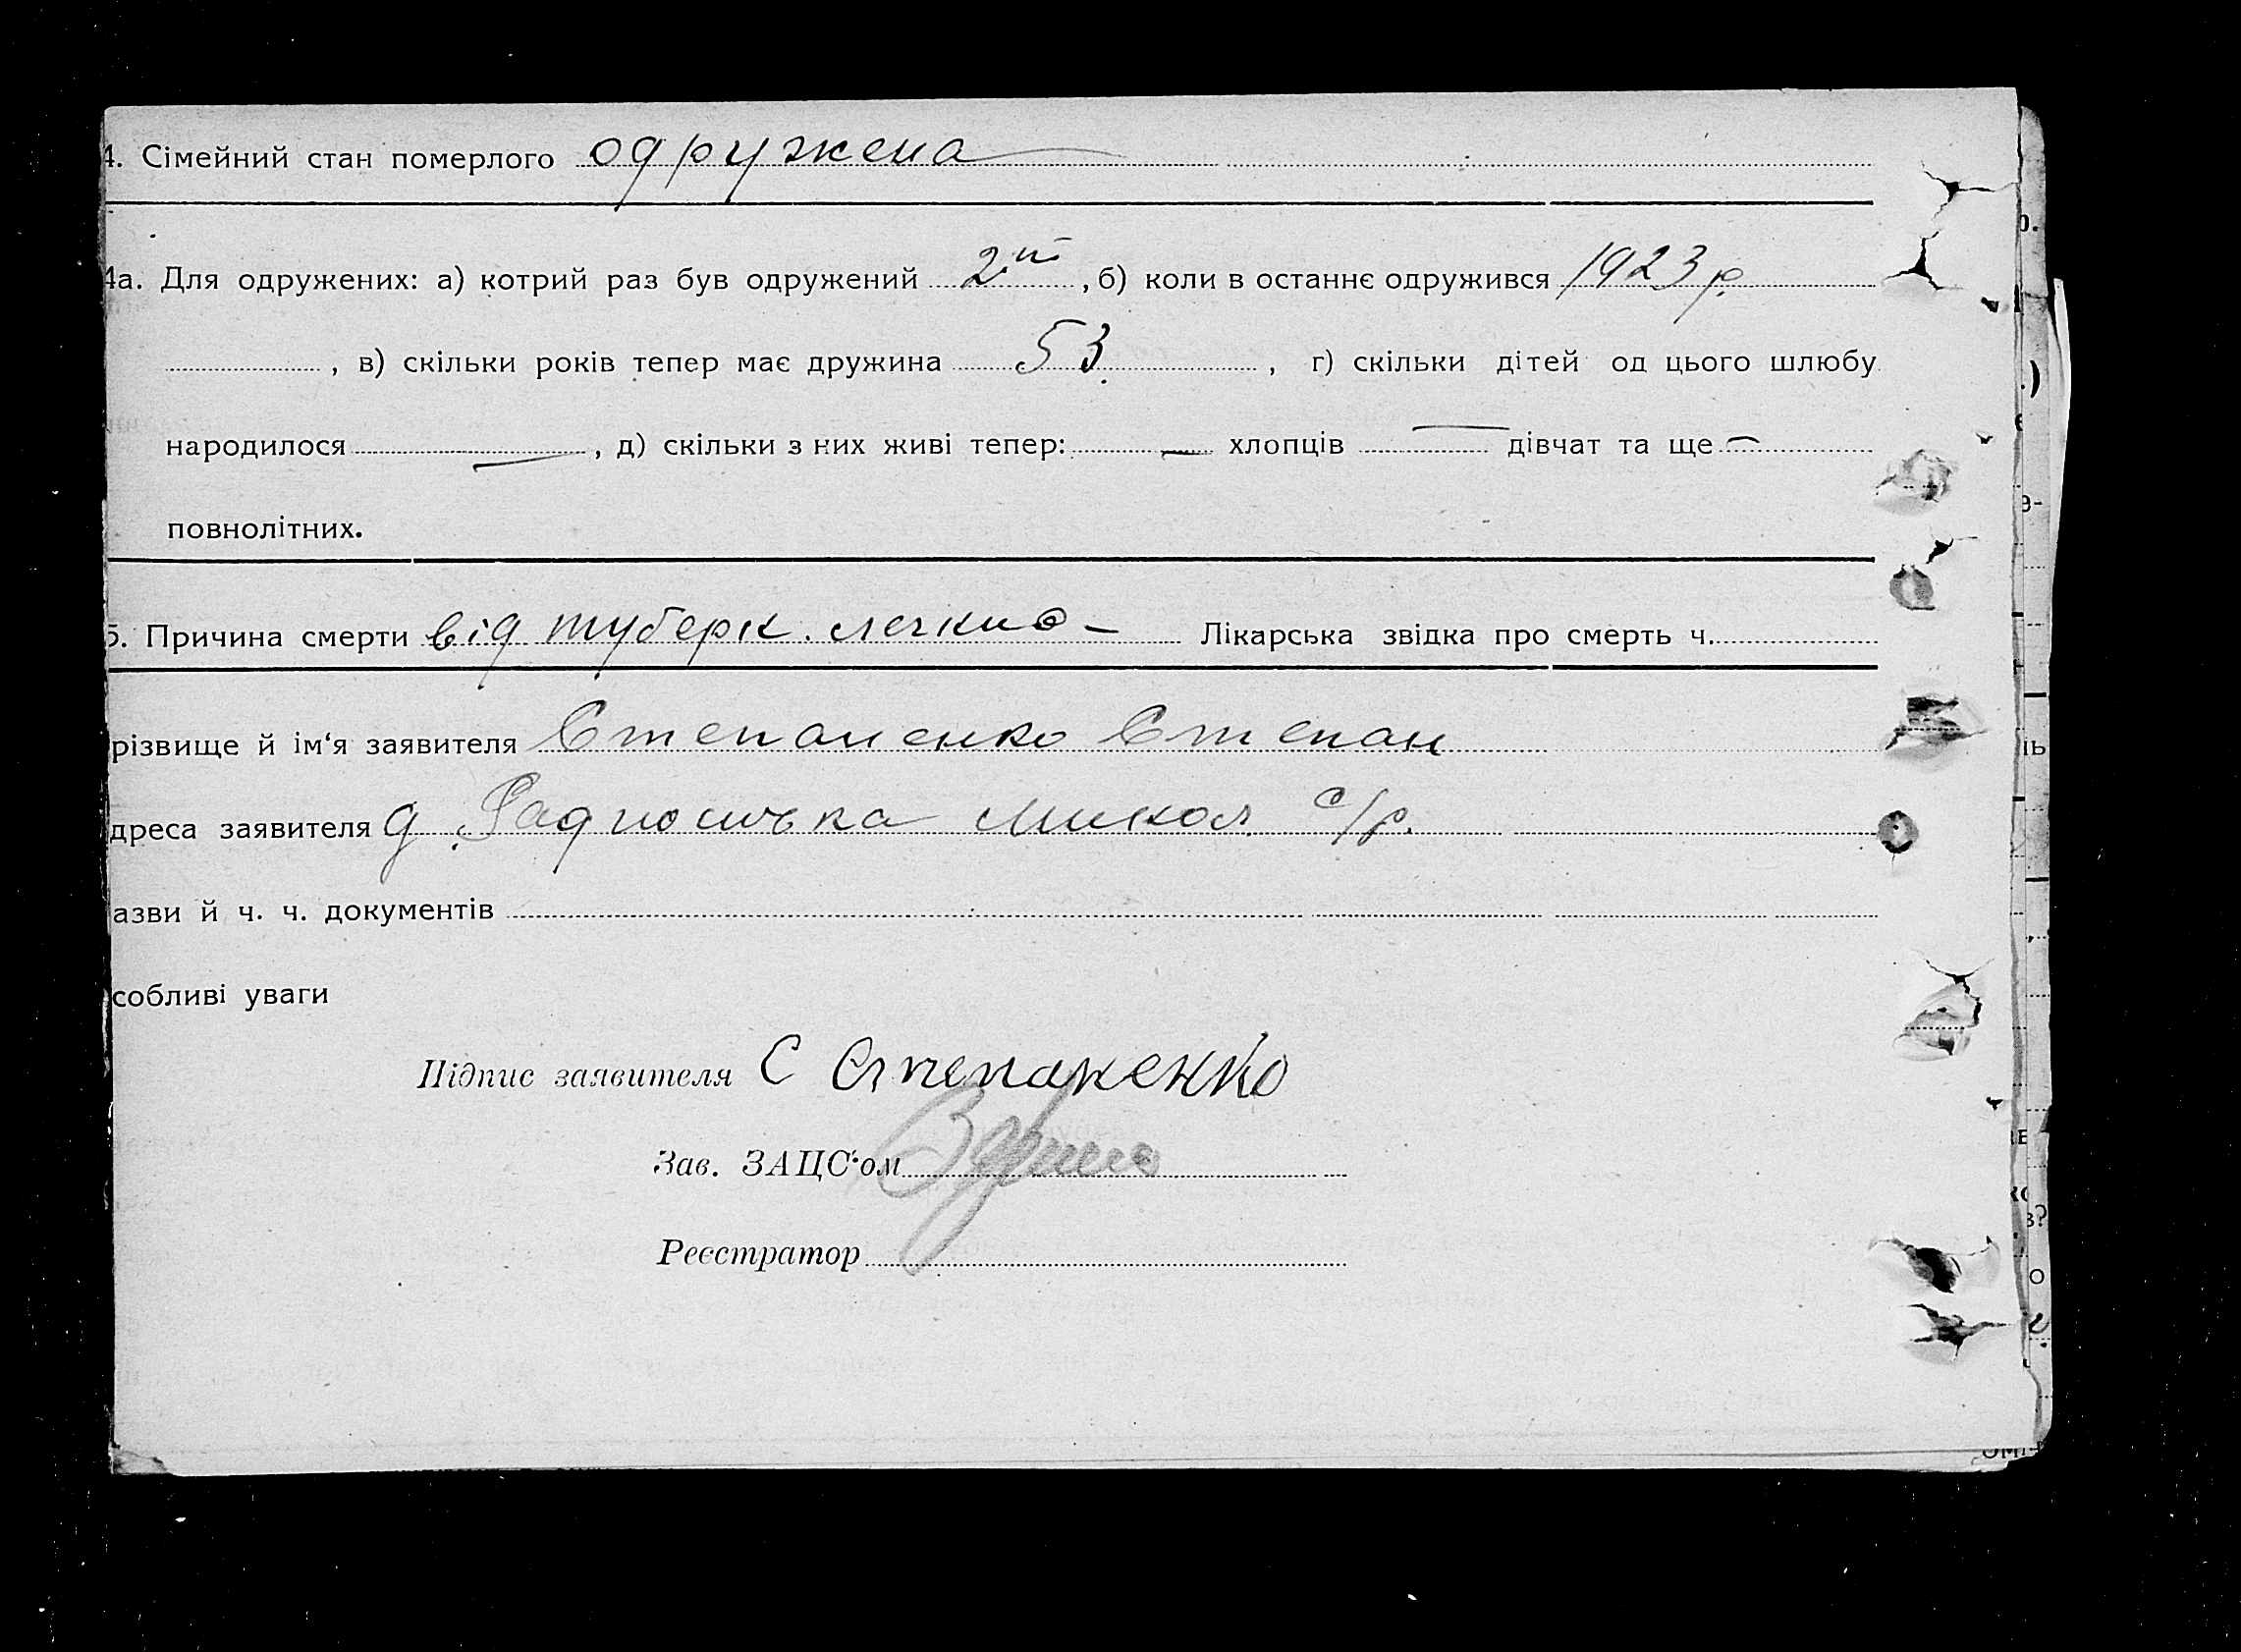 4. Сімейний стан померлого одружена
4а. Для одружених: а) котрий раз був одружений 2ий, б) коли в останнє одружився 1923 р.
, в) скільки років тепер має дружина 53, г) скільки дітей од цього шлюбу
народилося —, д) скільки з них живі тепер: — хлопців — дівчат та ще —
повнолітних.
5. Причина смерти від туберк. легкис – Лікарська звідка про смерть ч.
різвище й ім‘я заявителя Степаненко Степан
дреса заявителя Микол с/р.
азви й ч. ч. документів
собливі уваги
Підпис заявителя С Степаненко
Зав. ЗАЦС‘ом
Реєстратор